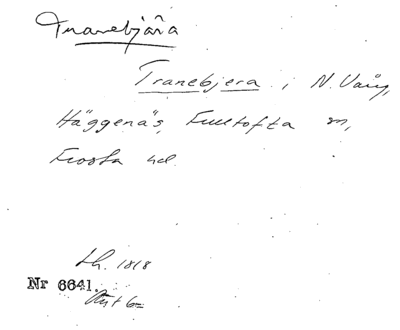 Tranebjära
Tranebjera i N. Vång,
Häggenäs, Fulltofta sn,
Frosta hd.
Lh. 1818
Nr 6641.
Akt